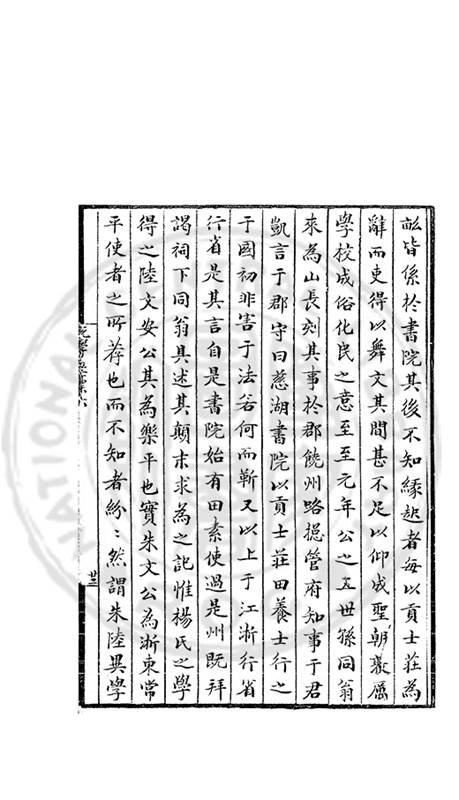 畝皆係於書院其後不知緣起者每以貢士莊為
辭而吏得以舞文其間甚不足以仰成聖朝褒厲
學校成俗化民之意至至元年公之五世孫同翁
來為山長刻其事於郡饒州路揔管府知事于君
凱言于郡守曰慈湖書院以貢士莊田養士行之
于國初非害于法若何而靳又以上于江浙行省
行省是其言自是書院始有田素使過是州既拜
謁祠下同翁具述其顛末求為之記惟楊氏之學
得之陸文安公其為樂平也實朱文公為浙東常
平使者之所荐也而不知者紛〻然謂朱陸異學
廿三